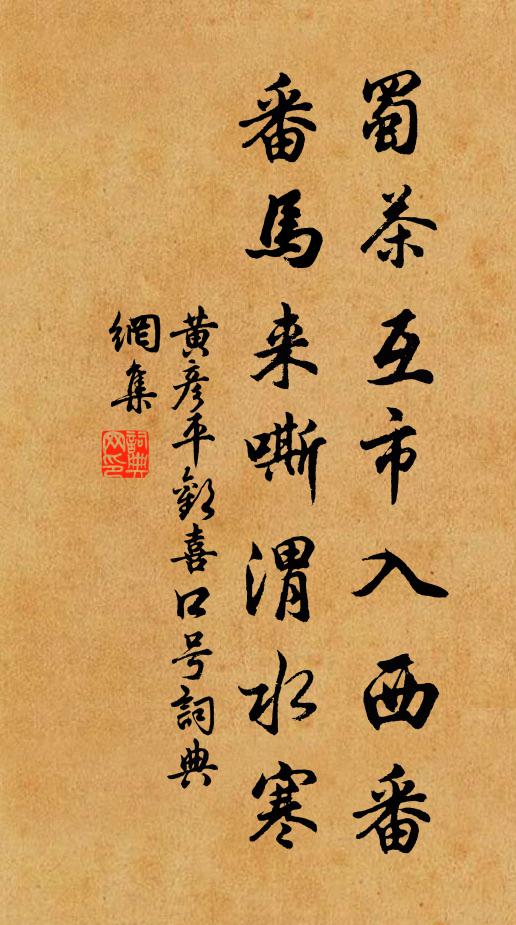 蜀茶互市入西番
番馬来嘶渭水寒
黄彦平歡喜口号詞典
網集
詞典
网印